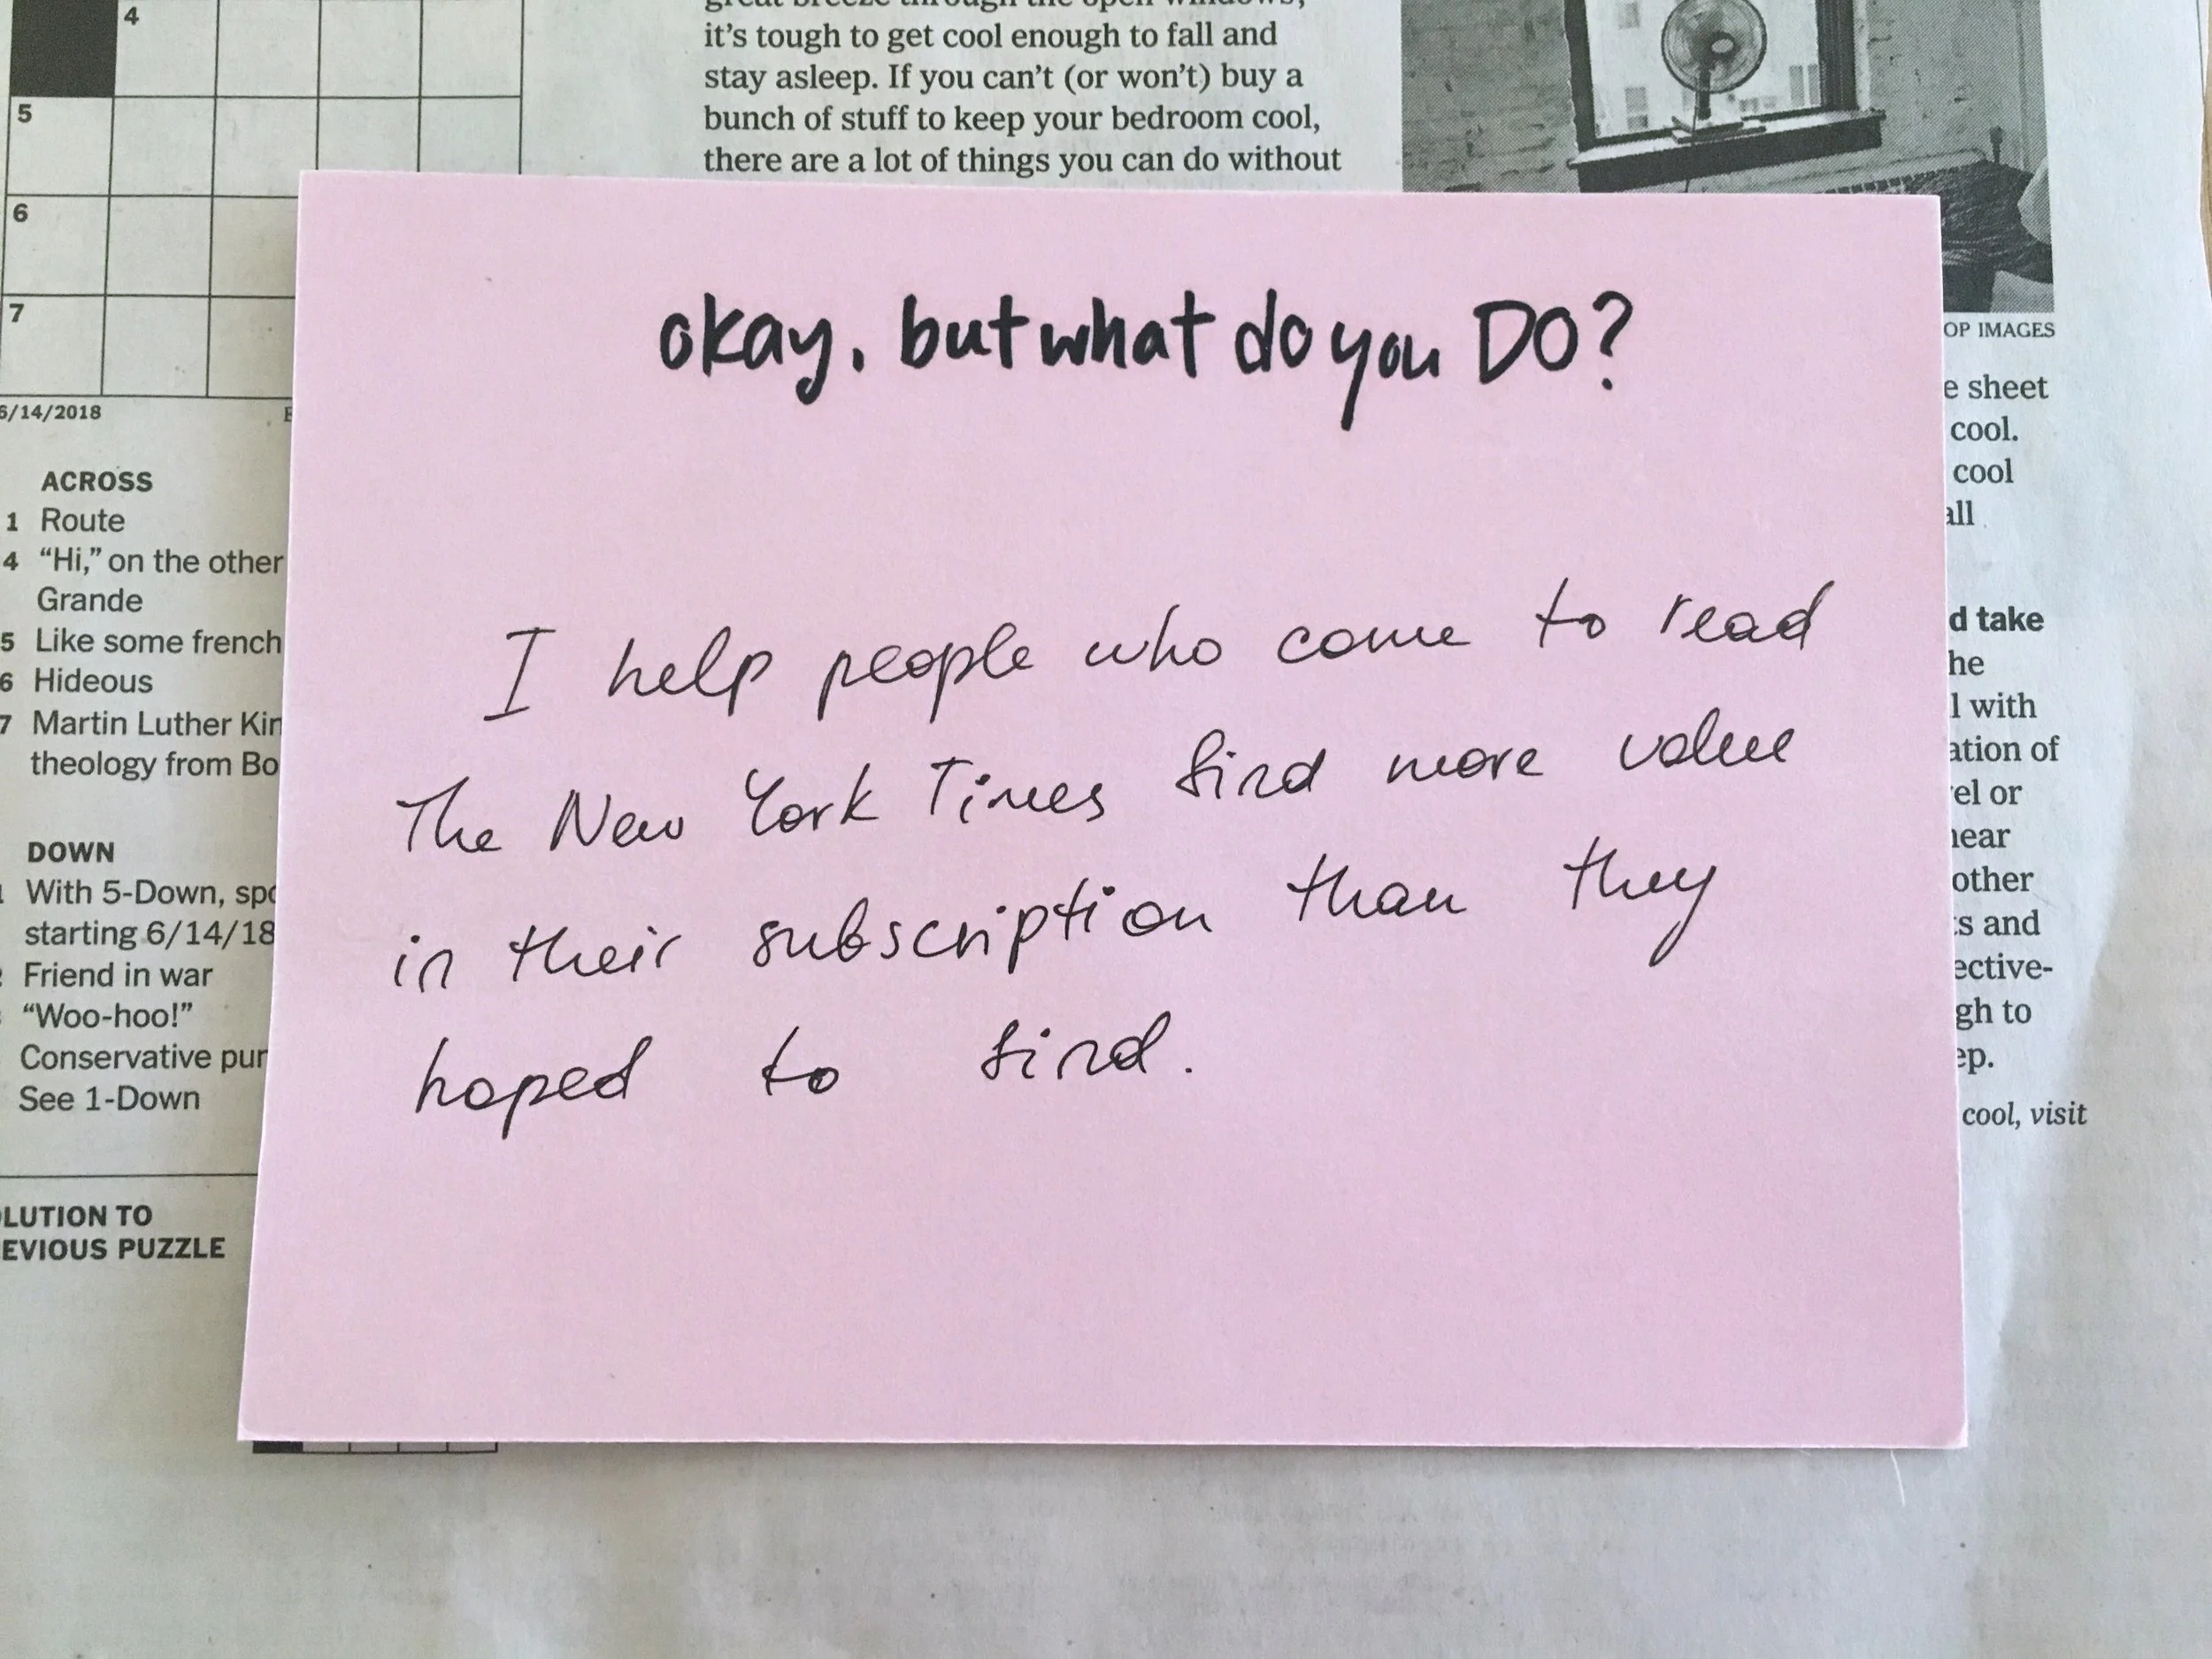 4
5
6
7
6/14/2018
ACROSS
1 Route
4 “Hi,” on the other
Grande
5 Like some french
6 Hideous
7 Martin Luther Kin
theology from Bo
DOWN
With 5-Down, spo
starting 6/14/18
Friend in war
“Woo-hoo!”
Conservative pun
See 1-Down
LUTION TO
EVIOUS PUZZLE
great breeze through the open windows,
it’s tough to get cool enough to fall and
stay asleep. If you can’t (or won’t) buy a
bunch of stuff to keep your bedroom cool,
there are a lot of things you can do without
okay, but what do you DO?
I help people who come to read
The New York Times find more value
in their subscription than they
hoped to find.
OP IMAGES
e sheet
cool.
cool
all
d take
he
l with
ation of
el or
near
other
s and
ective-
gh to
ep.
cool, visit